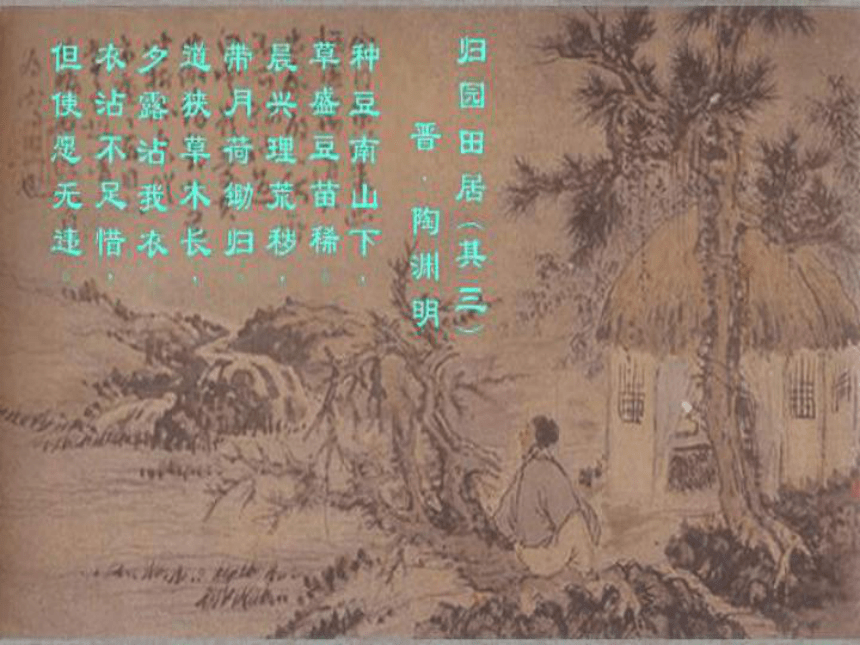 归园田居（其三）
晋·陶渊明
种豆南山下，
草盛豆苗稀。
晨兴理荒秽，
带月荷锄归。
道狭草木长，
夕露沾我衣。
衣沾不足惜，
但使愿无违。